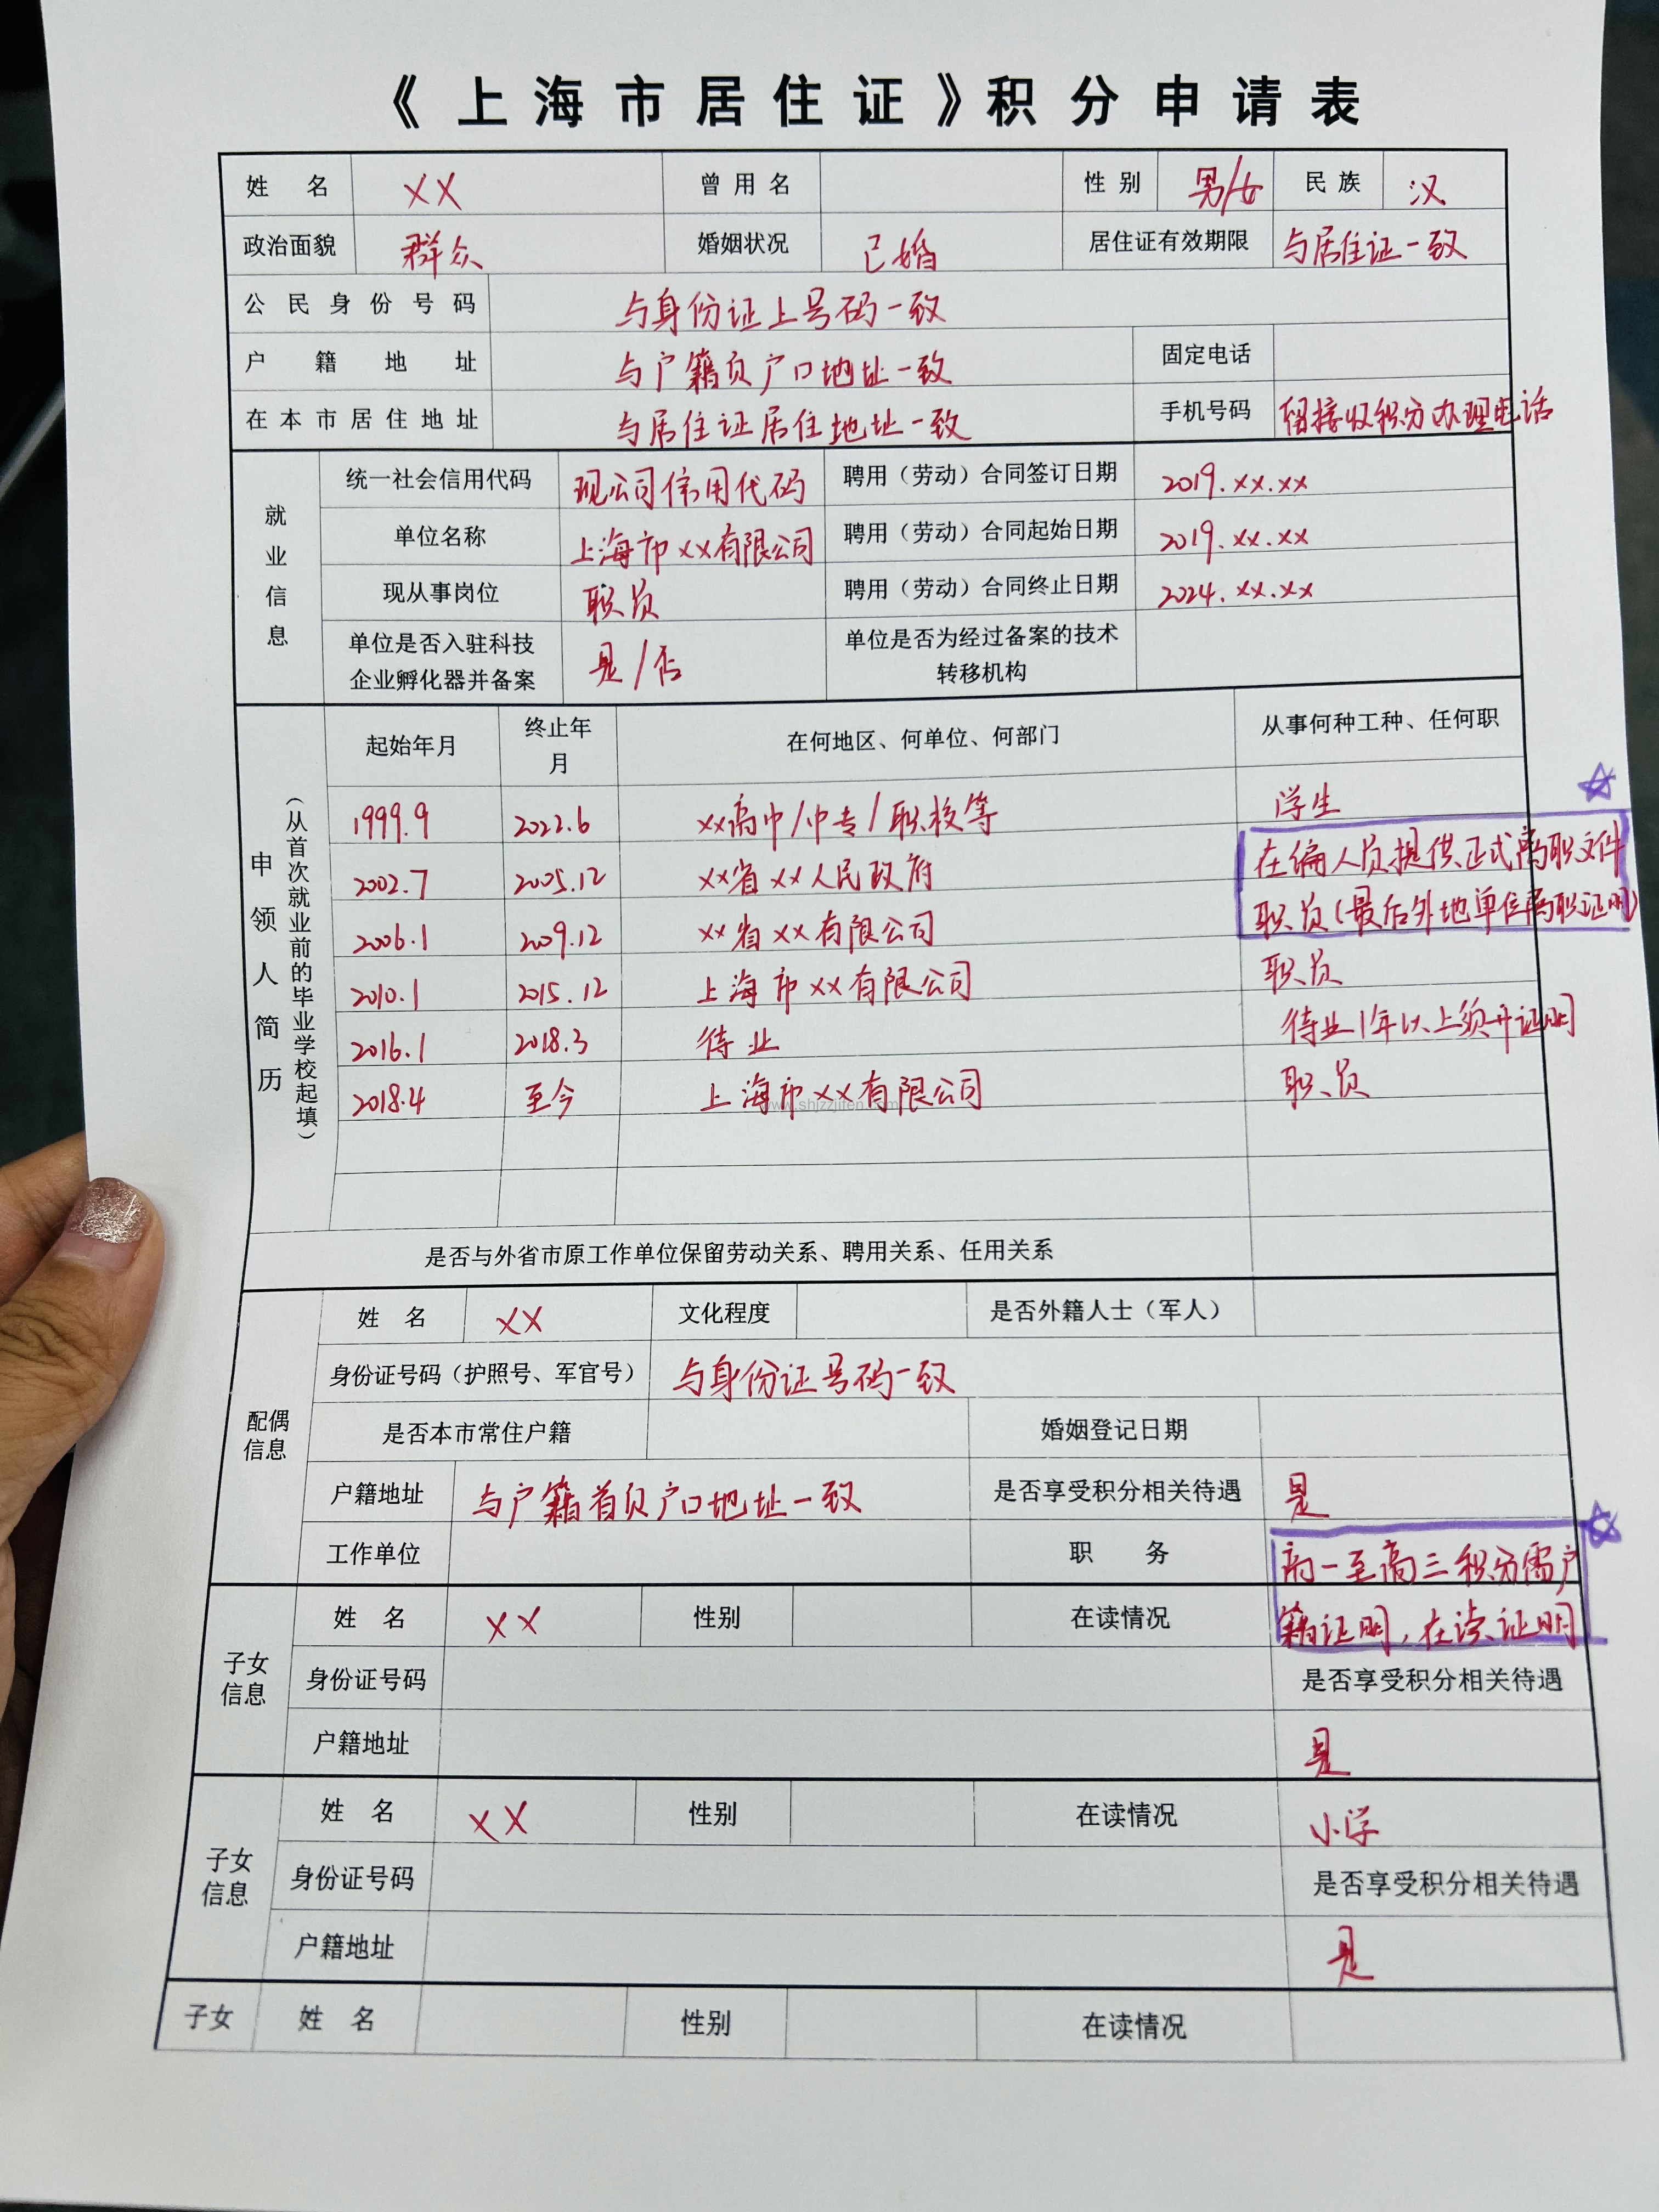 《上海市居住证》积分申请表
姓名 XX 曾用名 性别 男/女 民族 汉
政治面貌 群众 婚姻状况 已婚 居住证有效期限 与居住证一致
公民身份号码 与身份证上号码一致
户籍地址 与户籍页户口地址一致 固定电话
在本市居住地址 与居住证居住地址一致 手机号码 留接收积分办理电话
就业信息
统一社会信用代码 现公司信用代码 聘用（劳动）合同签订日期 2019.xx.xx
单位名称 上海市XX有限公司 聘用（劳动）合同起始日期 2019.xx.xx
现从事岗位 职员 聘用（劳动）合同终止日期 2024.xx.xx
单位是否入驻科技企业孵化器并备案 是/否 单位是否为经过备案的技术转移机构
申领人简历
（从首次就业前的毕业学校起填）
起始年月 终止年月 在何地区、何单位、何部门 从事何种工种、任何职
1999.9 2022.6 xx高中/中专/职校等 学生
2002.7 2005.12 xx省xx人民政府 在编人员提供正式离职文件
2006.1 2009.12 xx省xx有限公司 职员(最后外地单位离职证明)
2010.1 2015.12 上海市xx有限公司 职员
2016.1 2018.3 待业 待业1年以上须开证明
2018.4 至今 上海市xx有限公司 职员
www.shjzzjifen.com
是否与外省市原工作单位保留劳动关系、聘用关系、任用关系
配偶信息
姓名 XX 文化程度 是否外籍人士（军人）
身份证号码（护照号、军官号） 与身份证号码一致
是否本市常住户籍 婚姻登记日期
户籍地址 与户籍首页户口地址一致 是否享受积分相关待遇 是
工作单位 职务
子女信息
姓名 XX 性别 在读情况 高一至高三积分需户籍证明，在读证明
身份证号码 是否享受积分相关待遇
户籍地址 是
子女信息
姓名 XX 性别 在读情况 小学
身份证号码 是否享受积分相关待遇
户籍地址 是
子女 姓名 性别 在读情况